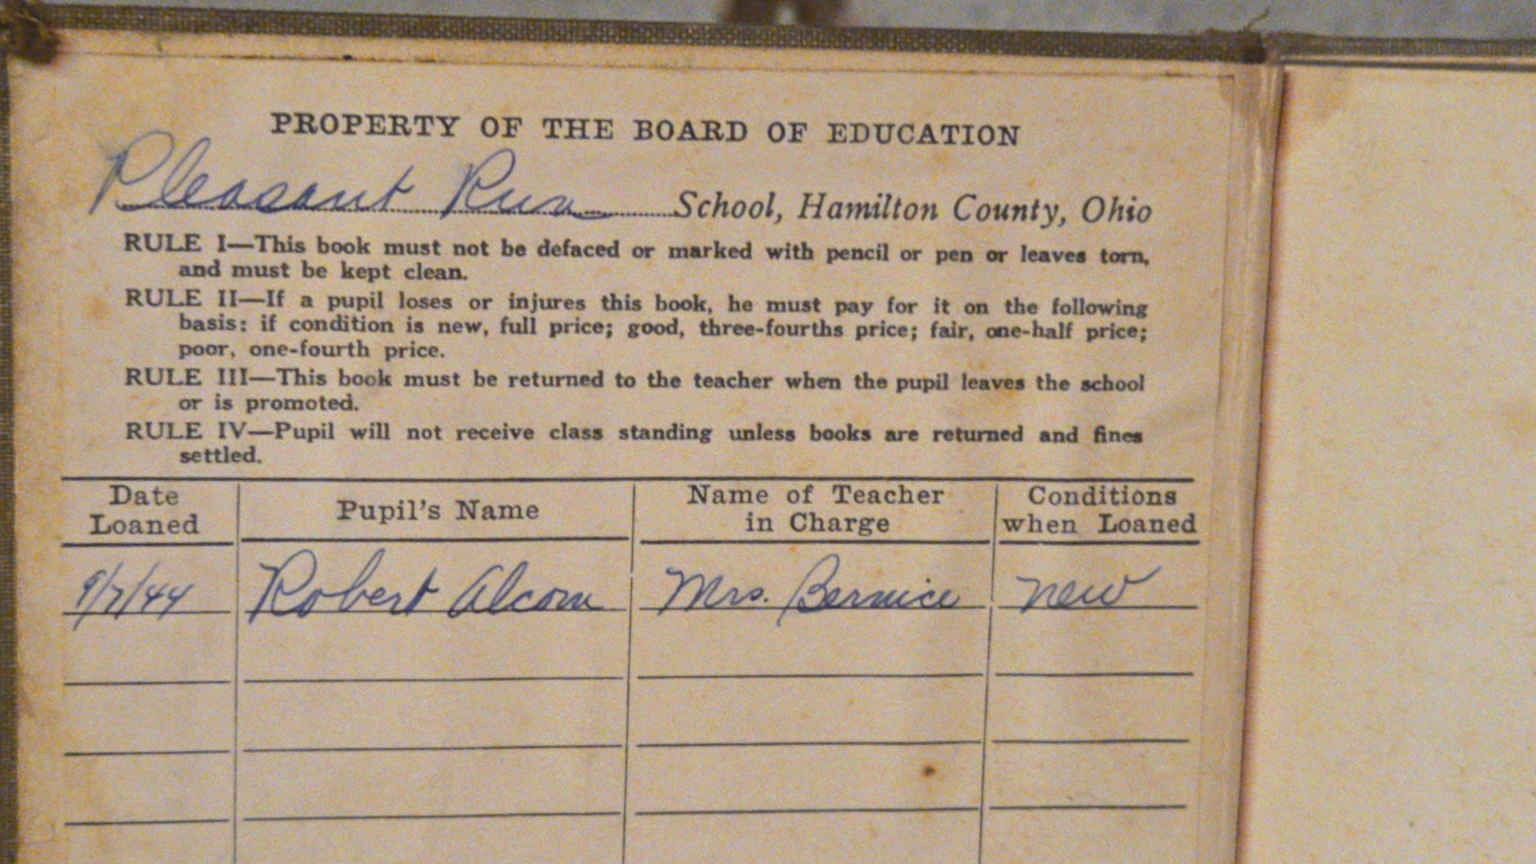 PROPERTY OF THE BOARD OF EDUCATION
Pleasant Run School, Hamilton County, Ohio
RULE I—This book must not be defaced or marked with pencil or pen or leaves torn,
and must be kept clean.
RULE II—If a pupil loses or injures this book, he must pay for it on the following
basis: if condition is new, full price; good, three-fourths price; fair, one-half price;
poor, one-fourth price.
RULE III—This book must be returned to the teacher when the pupil leaves the school
or is promoted.
RULE IV—Pupil will not receive class standing unless books are returned and fines
settled.
Date Loaned Pupil's Name Name of Teacher in Charge Conditions when Loaned
9/7/44 Robert Alcorn Mrs. Bernice new